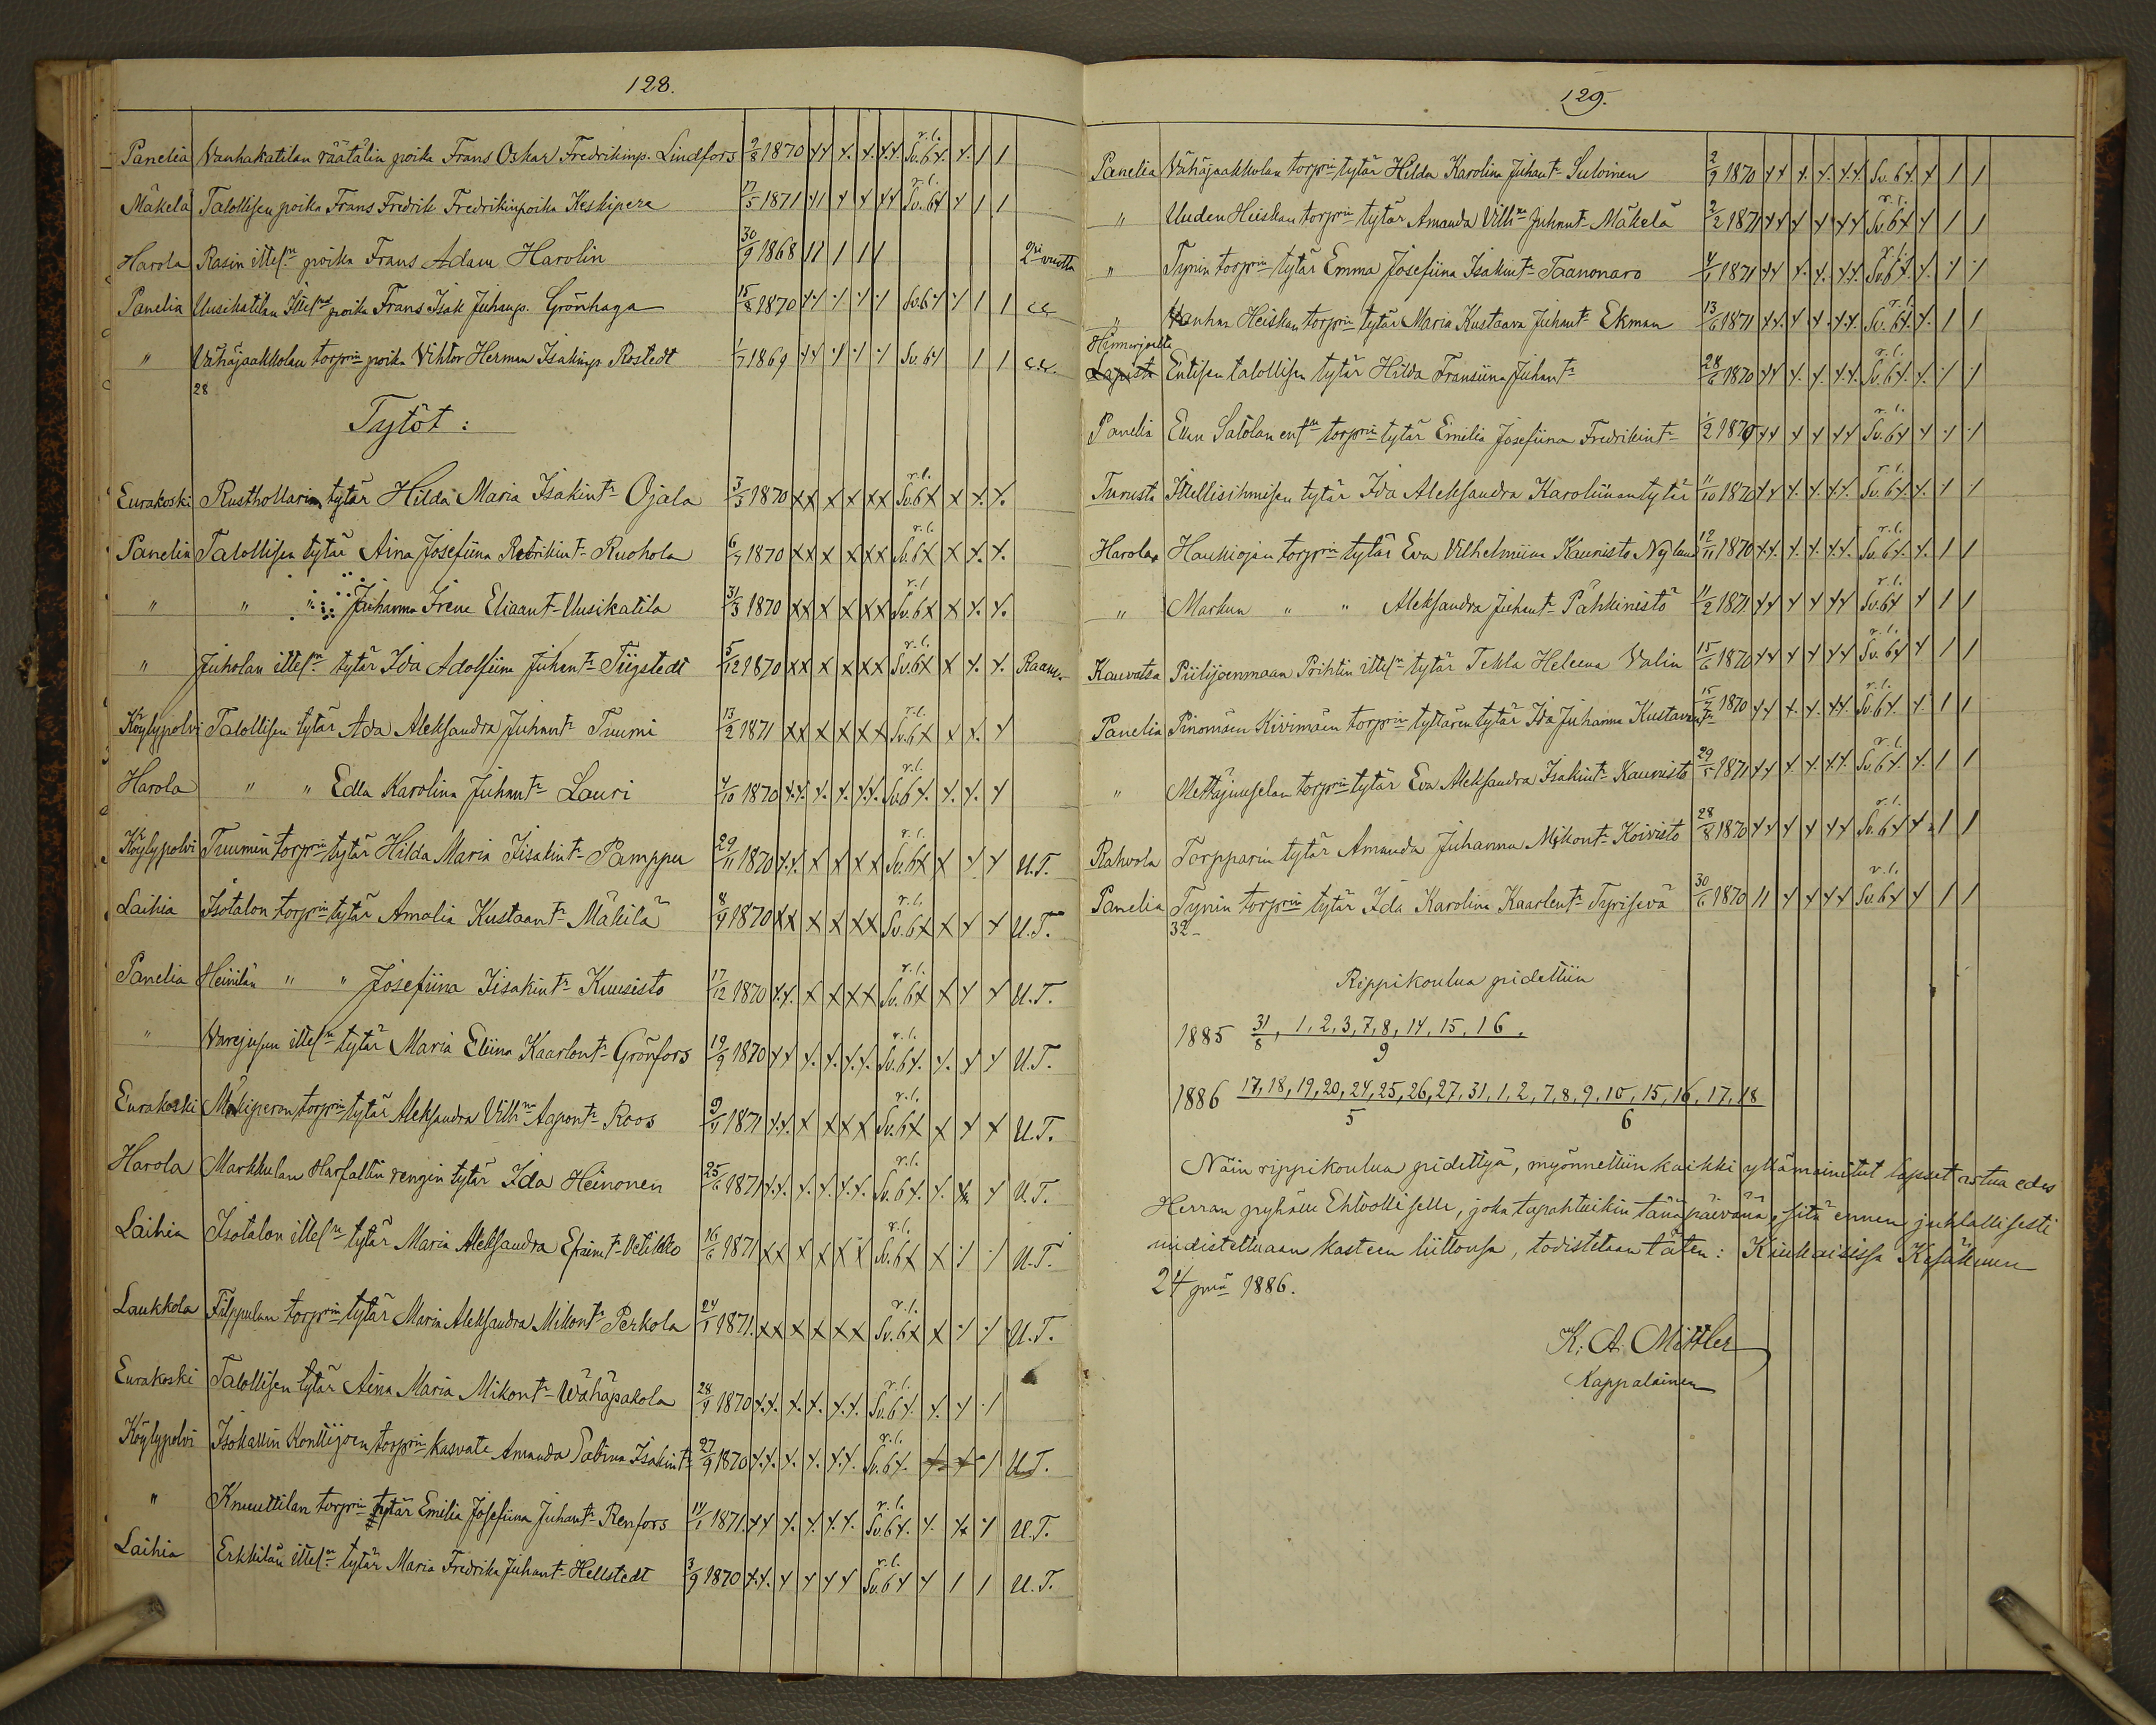 128.
Panelia Vanhakatilan räätälin poika Frans Oskar Fredrikinp. Lindfors 9/8 1870 r.l. Sv. 6
Mäkelä Talollisen poika Frans Fredrik Fredrikinpoika Keskipere 17/5 1871 r.l. Sv. 6
Harola Rasin ittels:n poika Frans Adam Harolin 30/9 1868 2:si vuotta
Panelia Uusikatilan Ittels:n poika Frans Isak Juhanp. Grönhaga 15/8 1870 Sv. 6
" Vähäjaakkolan torp:rin poika Vihtor Herman Isakinp Rostedt 1/7 1869 Sv. 6
28
Tytöt :
Eurakoski Rusthollarin tytär Hilda Maria Isakint:r Ojala 3/5 1870 xx x x xx r.l. Sv. 6 x x x. x.
Panelia Talollisen tytär Aina Josefiina Retrikint:r Ruohola 6/7 1870 xx x x xx r.l. Sv. 6 x x x. x.
" " " Juhanna Irene Eliaant:r Uusikatila 31/3 1870 xx x x xx r.l. Sv. 6 x x x. x.
" Juholan ittels:n tytär Ida Adolfiina Juhant:r Tiigstedt 5/12 1870 xx x x xx r.l. Sv. 6 x x x. x. Raam.
Köylypolvi Talollisen tytär Ada Aleksandra Juhant:r Tuumi 13/2 1871 xx x x xx r.l. Sv. 6 x x x. x
Harola " " Edla Karolina Juhant:r Lauri 4/10 1870 x.x. x. x. x.x. r.l. Sv. 6 x. x. x. x
Köylypolvi Tuumin torp:rin tytär Hilda Maria Iisakint:r Pamppu 29/11 1870 x.x. x x x x r.l. Sv. 6 x x x x U.T.
Laihia Isotalon torp:rin tytär Amalia Kustaant:r Mäkilä 8/9 1870 xx x x xx r.l. Sv. 6 x x x x U.T.
Panelia Heinilän " " Josefiina Iisakint:r Kuusisto 17/12 1870 x.x. x x xx r.l. Sv. 6 x x x x U.T.
" Varejusen ittels:n tytär Maria Eliina Kaarlont:r Grönfors 19/9 1870 xx x. x. x.x. r.l. Sv. 6 x. x. x x U.T.
Eurakoski Mäkiperon torp:rin tytär Aleksandra Vilh:na Agpont:r Roos 9/1 1871 x.x. x x x x r.l. Sv. 6 x x x x U.T.
Harola Markkulan Harfaltin rengin tytär Ida Heinonen 25/6 1871 x.x. x. x. x.x. r.l. Sv. 6 x. x. x x U.T.
Laihia Isotalon ittels:n tytär Maria Aleksandra Efraimt:r Vetikko 16/6 1871 xx x x x x r.l. Sv. 6 x x U.T.
Laukkola Filppulan torp:rin tytär Maria Aleksandra Mikont:r Perkola 24/1 1871. xx x x x x r.l. Sv. 6 x x U.T.
Eurakoski Talollisen tytär Aina Maria Mikont:r Wähäpakola 28/9 1870 x.x. x. x. x.x. r.l. Sv. 6 x. x. x
Köylypolvi Isokallin Konttijoen torp:rin kasvate Amanda Sabina Isakint:r 27/9 1870 x.x. x. x. x.x. r.l. Sv. 6 x. U.T.
" Knuuttilan torp:rin tytär Emilia Josefiina Juhant:r Renfors 14/1 1871. xx x. x. x.x. r.l. Sv. 6 x. x. x U.T.
Laihia Erkkilän ittels:n tytär Maria Fredrika Juhant:r Hellstedt 3/9 1870 x.x. x x x x r.l. Sv. 6 x x 1 1 U.T.
129.
Panelia Vähäjaakkolan torp:rin tytär Hilda Karolina Juhant:r Suloinen 2/9 1870 xx x. x. x.x. Sv. 6 x x 1 1
" Uuden Heiskan torp:rin tytär Amanda Vilh:na Juhant:r Mäkelä 2/2 1871 xx x x xx r.l. Sv. 6 x x 1 1
" Tynin torp:rin tytär Emma Josefiina Isakint:r Taanonaro 4/1 1871 xx x. x. x.x. r.l. Sv. 6 x. x.
" Vanhan Heiskan torp:rin tytär Maria Kustaava Juhant:r Ekman 13/6 1871 xx. x x x.x. r.l. Sv. 6 x. x. 1 1
Hinnerjoelta
Lapista Entisen talollisen tytär Hilda Fransiina Juhant:r 28/6 1870 xx x. x. x.x. r.l. Sv. 6 x. x.
Panelia Evan Sätölan ent:n torp:rin tytär Emilia Josefiina Fredrikint:r 1/2 1870 xx x x xx r.l. Sv. 6 x x
Turusta Itellisihmisen tytär Ida Aleksandra Karoliinantytär 11/10 1870 xx x. x. x.x. r.l. Sv. 6 x. x.
Harola Haukiojan torp:rin tytär Eva Vilhelmiina Kaunisto Nylund 12/11 1870 x.x. x. x. x.x. r.l. Sv. 6 x. x. 1 1
" Markun " " Aleksandra Juhant:r Pähkinistö 11/2 1871. xx x x xx r.l. Sv. 6 x x 1 1
Kauvatsa Piilijoenmaan Prihtin ittels:n tytär Tekla Heleena Valin 15/6 1870 xx x x xx r.l. Sv. 6 x x 1 1
Panelia Pinomäen Kivimäen torp:rin tyttären tytär Ida Juhanna Kustavant:r 15/7 1870 xx x. x. xx. r.l. Sv. 6 x. x. 1 1
" Mettäjuuselan torp:rin tytär Eva Aleksandra Isakint:r Kaunisto 29/5 1871 xx x. x. x.x. r.l. Sv. 6 x. x. 1 1
Rahvola Torpparin tytär Amanda Juhanna Mikont:r Koivisto 28/8 1870 xx x x xx r.l. Sv. 6 x x 1 1
Panelia Tynin torp:rin tytär Ida Karolina Kaarlent:r Tyrisevä 30/6 1870 11 x x xx r.l. Sv. 6 x x 1 1
32
Rippikoulua pidettiin
1885 31/8, 1, 2, 3, 7, 8, 14, 15, 16. / 9
1886 17, 18, 19, 20, 24, 25, 26, 27, 31, 1, 2, 7, 8, 9, 10, 15, 16, 17, 18
5 6
Näin rippikoulua pidettyä, myönnettiin kaikki yllämainitut lapset astua edes
Herran pyhälle Ehtoolliselle, joka tapahtuikin tänäpäivänä, sitä ennen juhlallisesti
uudistettuaan kasteen liittonsa, todistetaan täten: Kiukaisissa Kesäkuun
24 p:nä 1886.
K. A. Mittler
Kappalainen